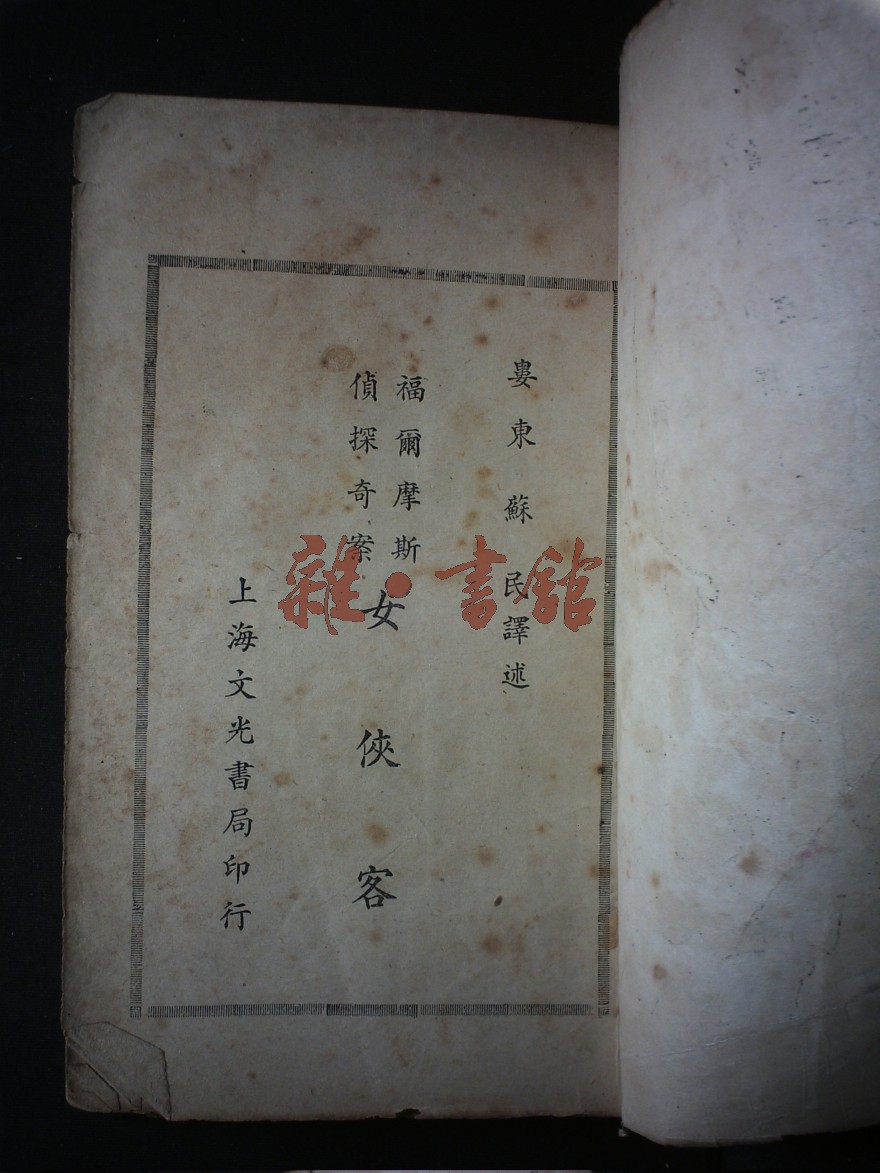 婁東蘇民譯述
福爾摩斯
偵探奇案
女俠客
上海文光書局印行
雜·書館